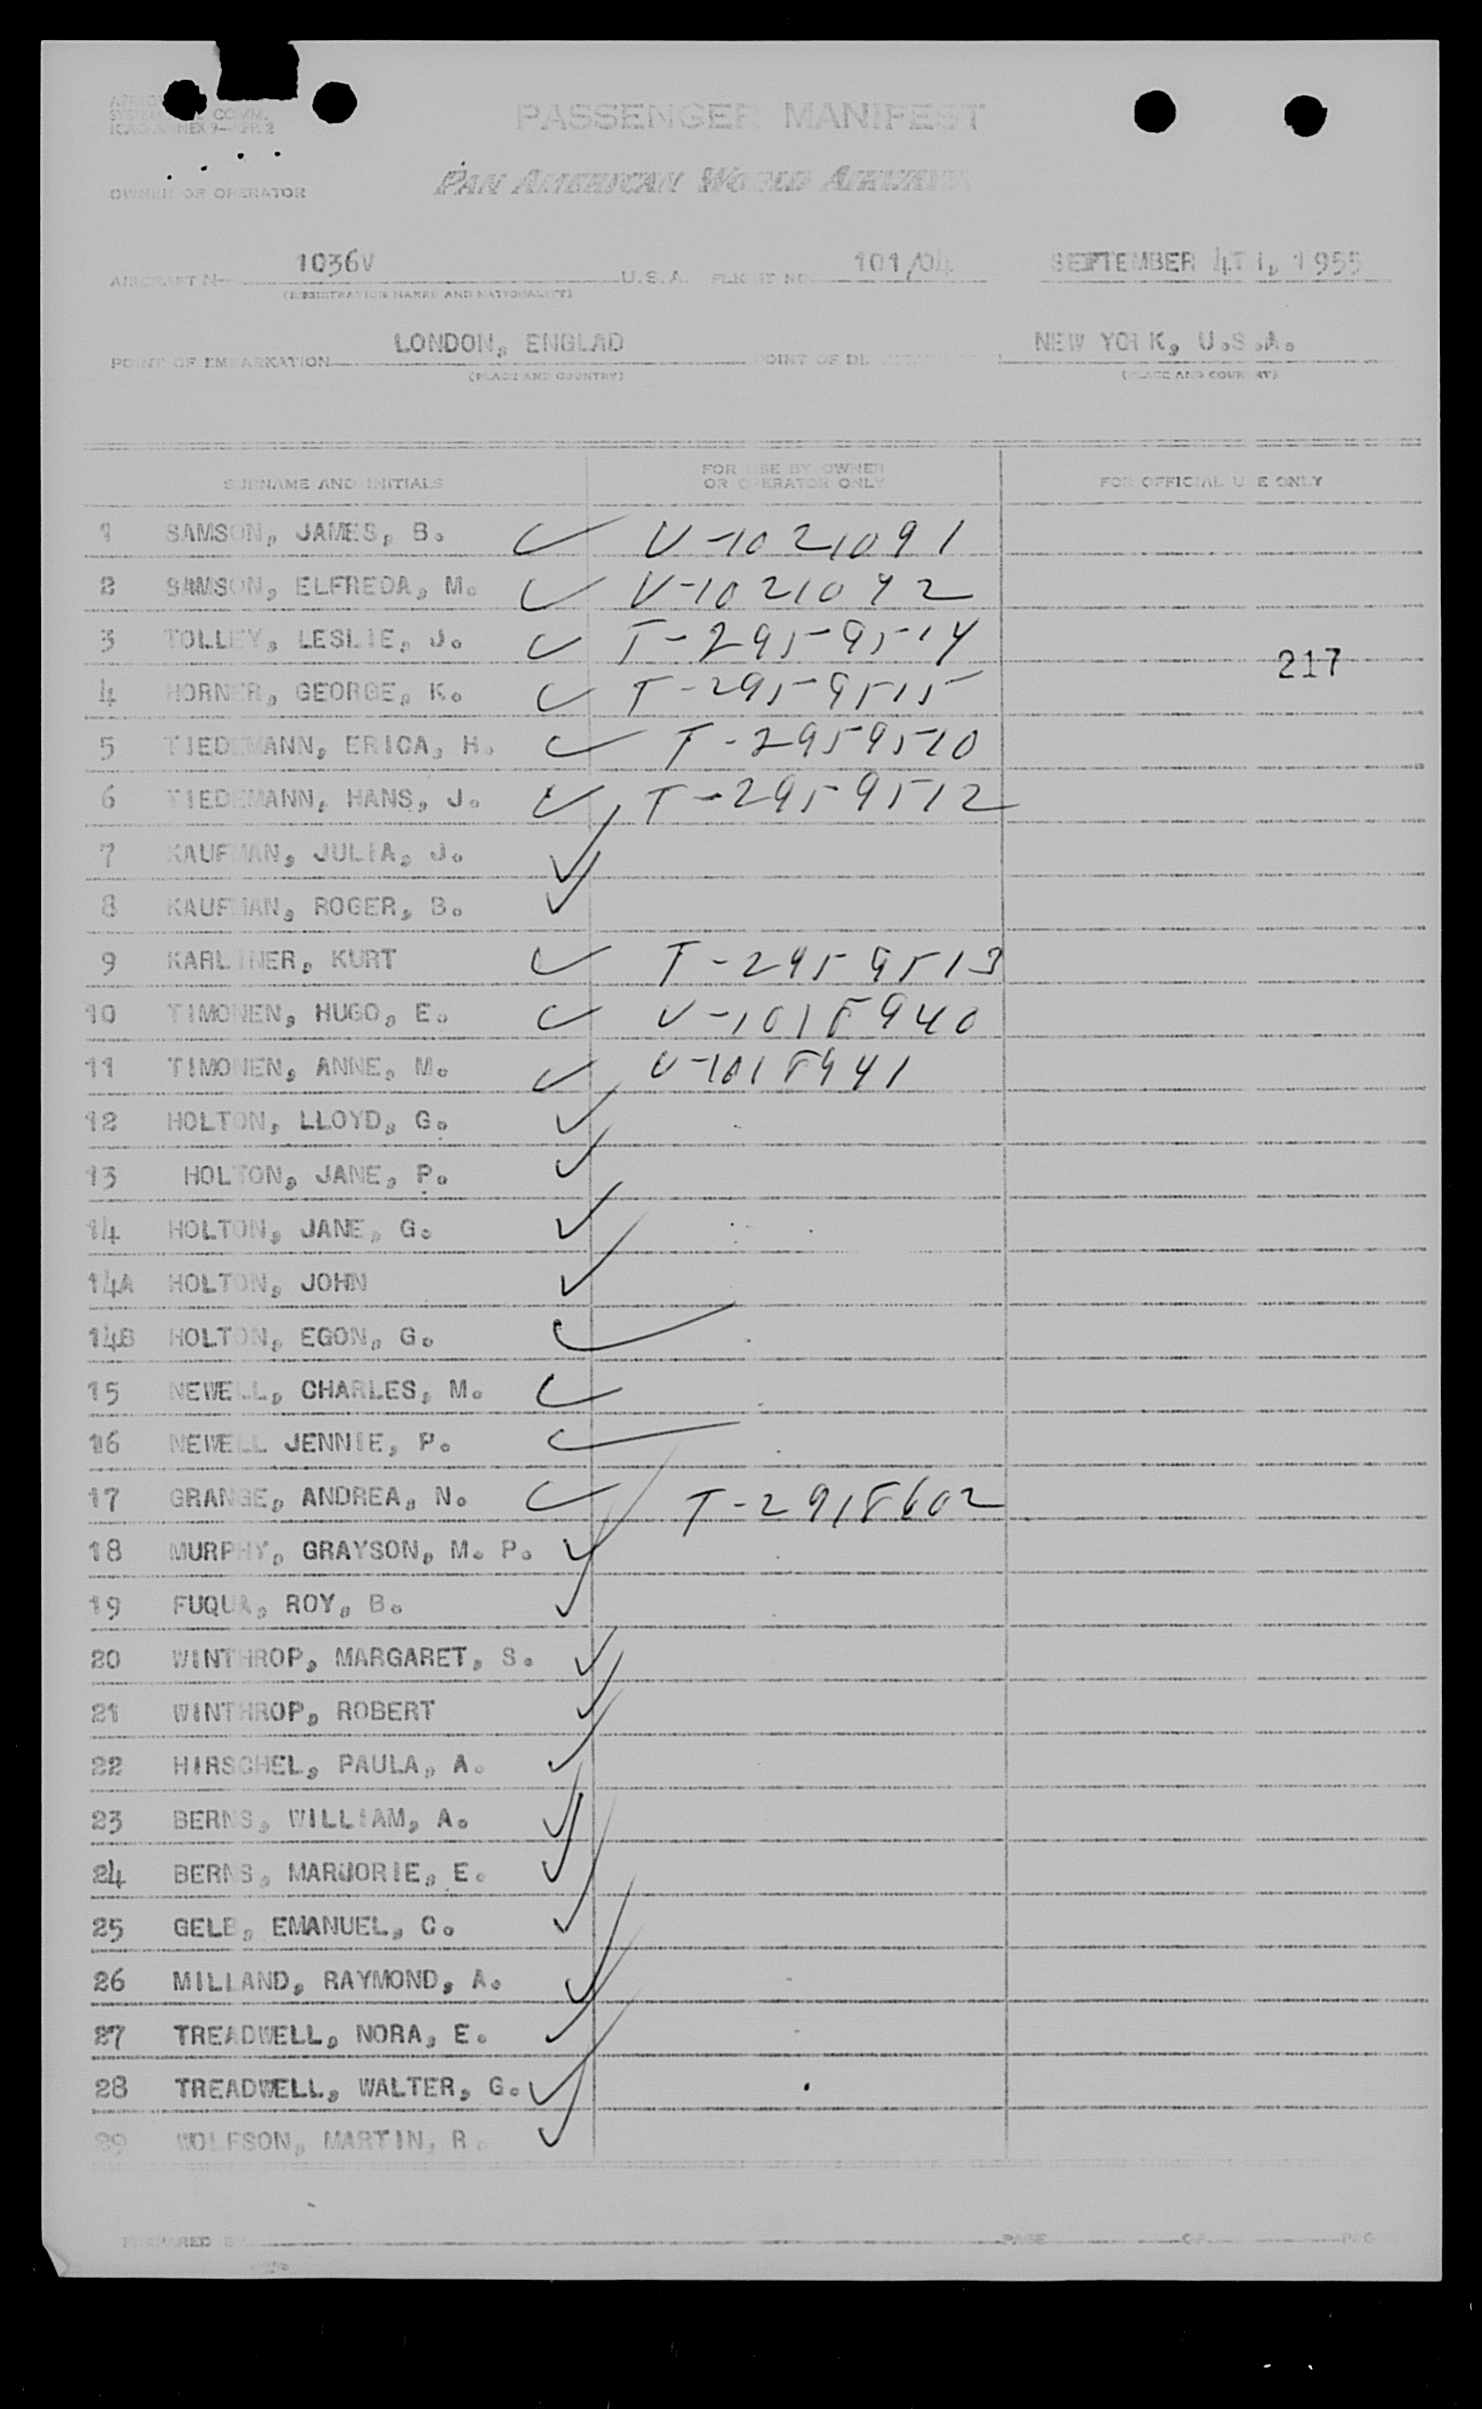 SYSTEM COMM.
ICAO ANNEX 9—APP. 2
PASSENGER MANIFEST
OWNER OR OPERATOR
PAN AMERICAN WORLD AIRWAYS
AIRCRAFT N 1036V U.S.A. FLIGHT NO. 101/04 SEPTEMBER 4TH, 1955
(REGISTRATION MARKS AND NATIONALITY)
POINT OF EMBARKATION LONDON, ENGLAD POINT OF NEW YORK, U.S.A.
(PLACE AND COUNTRY) (PLACE AND COUNTRY)
SURNAME AND INITIALS FOR USE BY OWNER OR OPERATOR ONLY FOR OFFICIAL USE ONLY
1 SAMSON, JAMES, B. V-1021091
2 SAMSON, ELFREDA, M. V-1021092
3 TOLLEY, LESLIE, J. T-2959514
217
4 HORNER, GEORGE, K. T-2959515
5 TIEDEMANN, ERICA, H. T-2959510
6 TIEDEMANN, HANS, J. T-2959512
7 KAUFMAN, JULIA, J.
8 KAUFMAN, ROGER, B.
9 KARLINER, KURT T-2959513
10 TIMONEN, HUGO, E. V-1018940
11 TIMONEN, ANNE, M. V-1018941
12 HOLTON, LLOYD, G.
13 HOLTON, JANE, P.
14 HOLTON, JANE, G.
14A HOLTON, JOHN
14B HOLTON, EGON, G.
15 NEWELL, CHARLES, M.
16 NEWELL JENNIE, P.
17 GRANGE, ANDREA, N. T-2918602
18 MURPHY, GRAYSON, M. P.
19 FUQUA, ROY, B.
20 WINTHROP, MARGARET, S.
21 WINTHROP, ROBERT
22 HIRSCHEL, PAULA, A.
23 BERNS, WILLIAM, A.
24 BERNS, MARJORIE, E.
25 GELB, EMANUEL, C.
26 MILLAND, RAYMOND, A.
27 TREADWELL, NORA, E.
28 TREADWELL, WALTER, G.
29 WOLFSON, MARTIN, R.
PREPARED BY PAGE OF